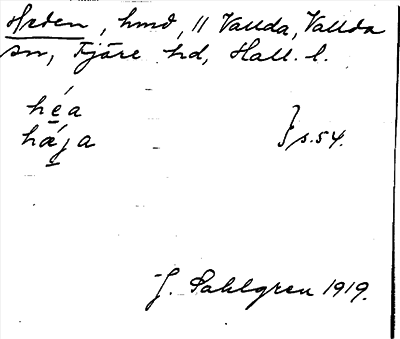 Heden, hmd, 11 Vallda, Vallda
sn, Fjäre hd, Hall. l.
héa
hǽja } s. 54.
J. Sahlgren 1919.